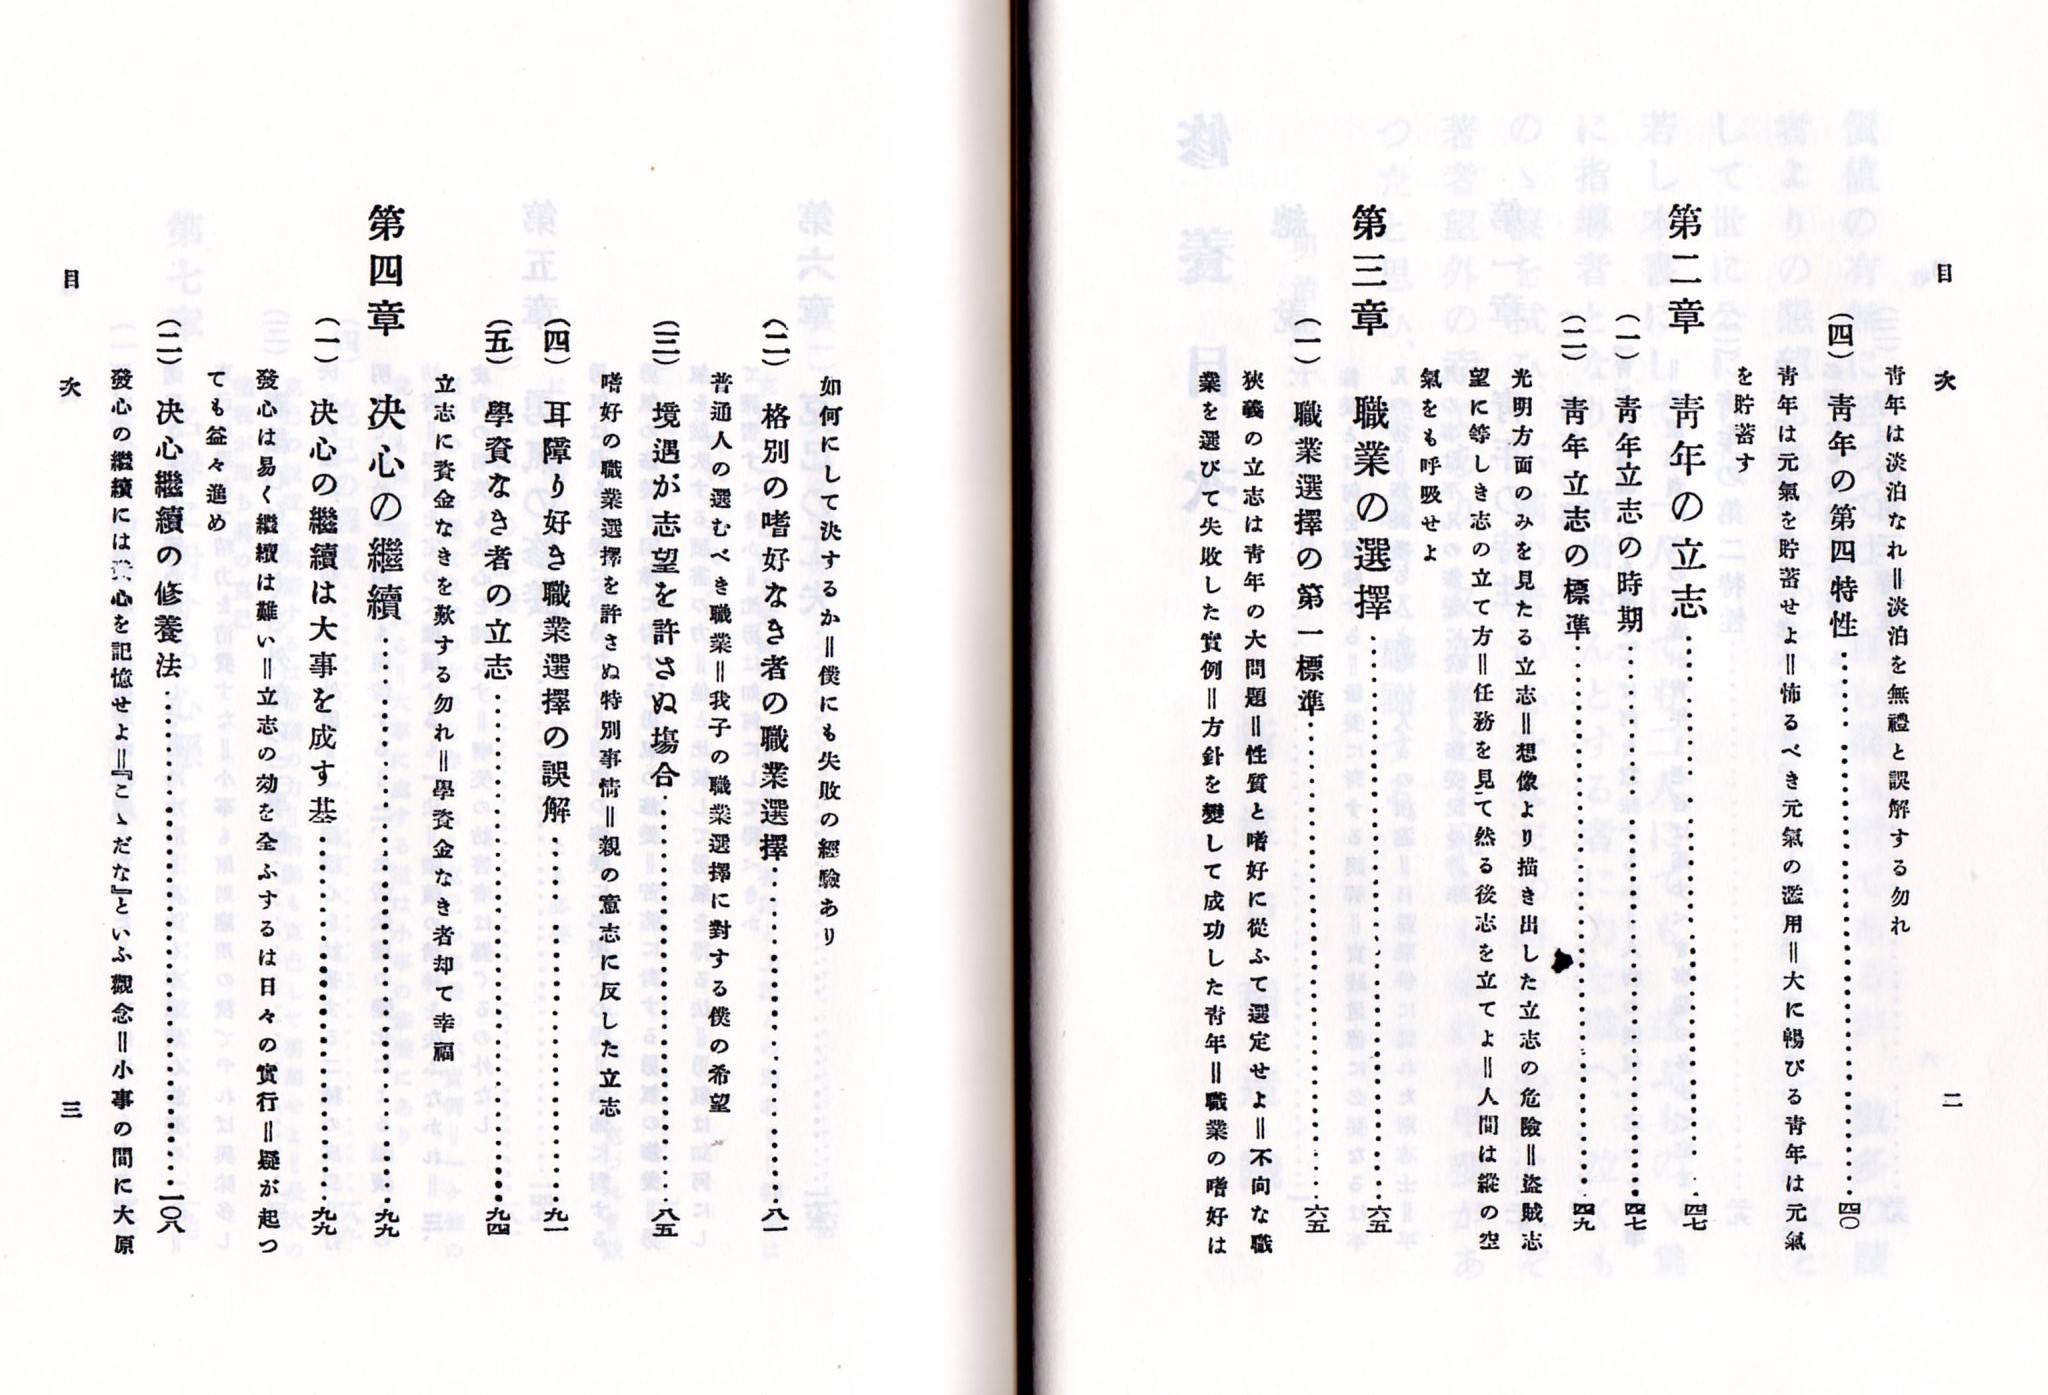 目次
二
青年は淡泊なれ＝淡泊を無禮と誤解する勿れ
(四) 青年の第四特性……四〇
青年は元氣を貯蓄せよ＝怖るべき元氣の濫用＝大に暢びる青年は元氣
を貯蓄す
第二章 青年の立志……四七
(一) 青年立志の時期……四七
(二) 青年立志の標準……四九
光明方面のみを見たる立志＝想像より描き出した立志の危險＝盜賊志
望に等しき志の立て方＝任務を見て然る後志を立てよ＝人間は縱の空
氣をも呼吸せよ
第三章 職業の選擇……六五
(一) 職業選擇の第一標準……六五
狹義の立志は青年の大問題＝性質と嗜好に從ふて選定せよ＝不向な職
業を選びて失敗した實例＝方針を變して成功した青年＝職業の嗜好は
如何にして決するか＝僕にも失敗の經驗あり
(二) 格別の嗜好なき者の職業選擇……八一
普通人の選むべき職業＝我子の職業選擇に對する僕の希望
(三) 境遇が志望を許さぬ場合……八五
嗜好の職業選擇を許さぬ特別事情＝親の意志に反した立志
(四) 耳障り好き職業選擇の誤解……九一
(五) 學資なき者の立志……九四
立志に資金なきを歎する勿れ＝學資金なき者却て幸福
第四章 决心の繼續……九九
(一) 决心の繼續は大事を成す基……九九
發心は易く繼續は難い＝立志の効を全ふするは日々の實行＝疑が起つ
ても益々進め
(二) 决心繼續の修養法……一〇八
發心の繼續には發心を記憶せよ＝『こゝだな』といふ觀念＝小事の間に大原
目次
三